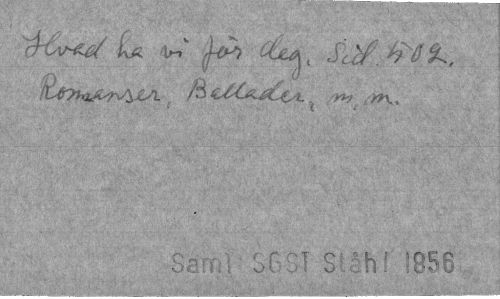 Hvad ha vi för deg. Sid. 502.
Romanser, Ballader, m. m.
Saml SGST Ståhl 1856